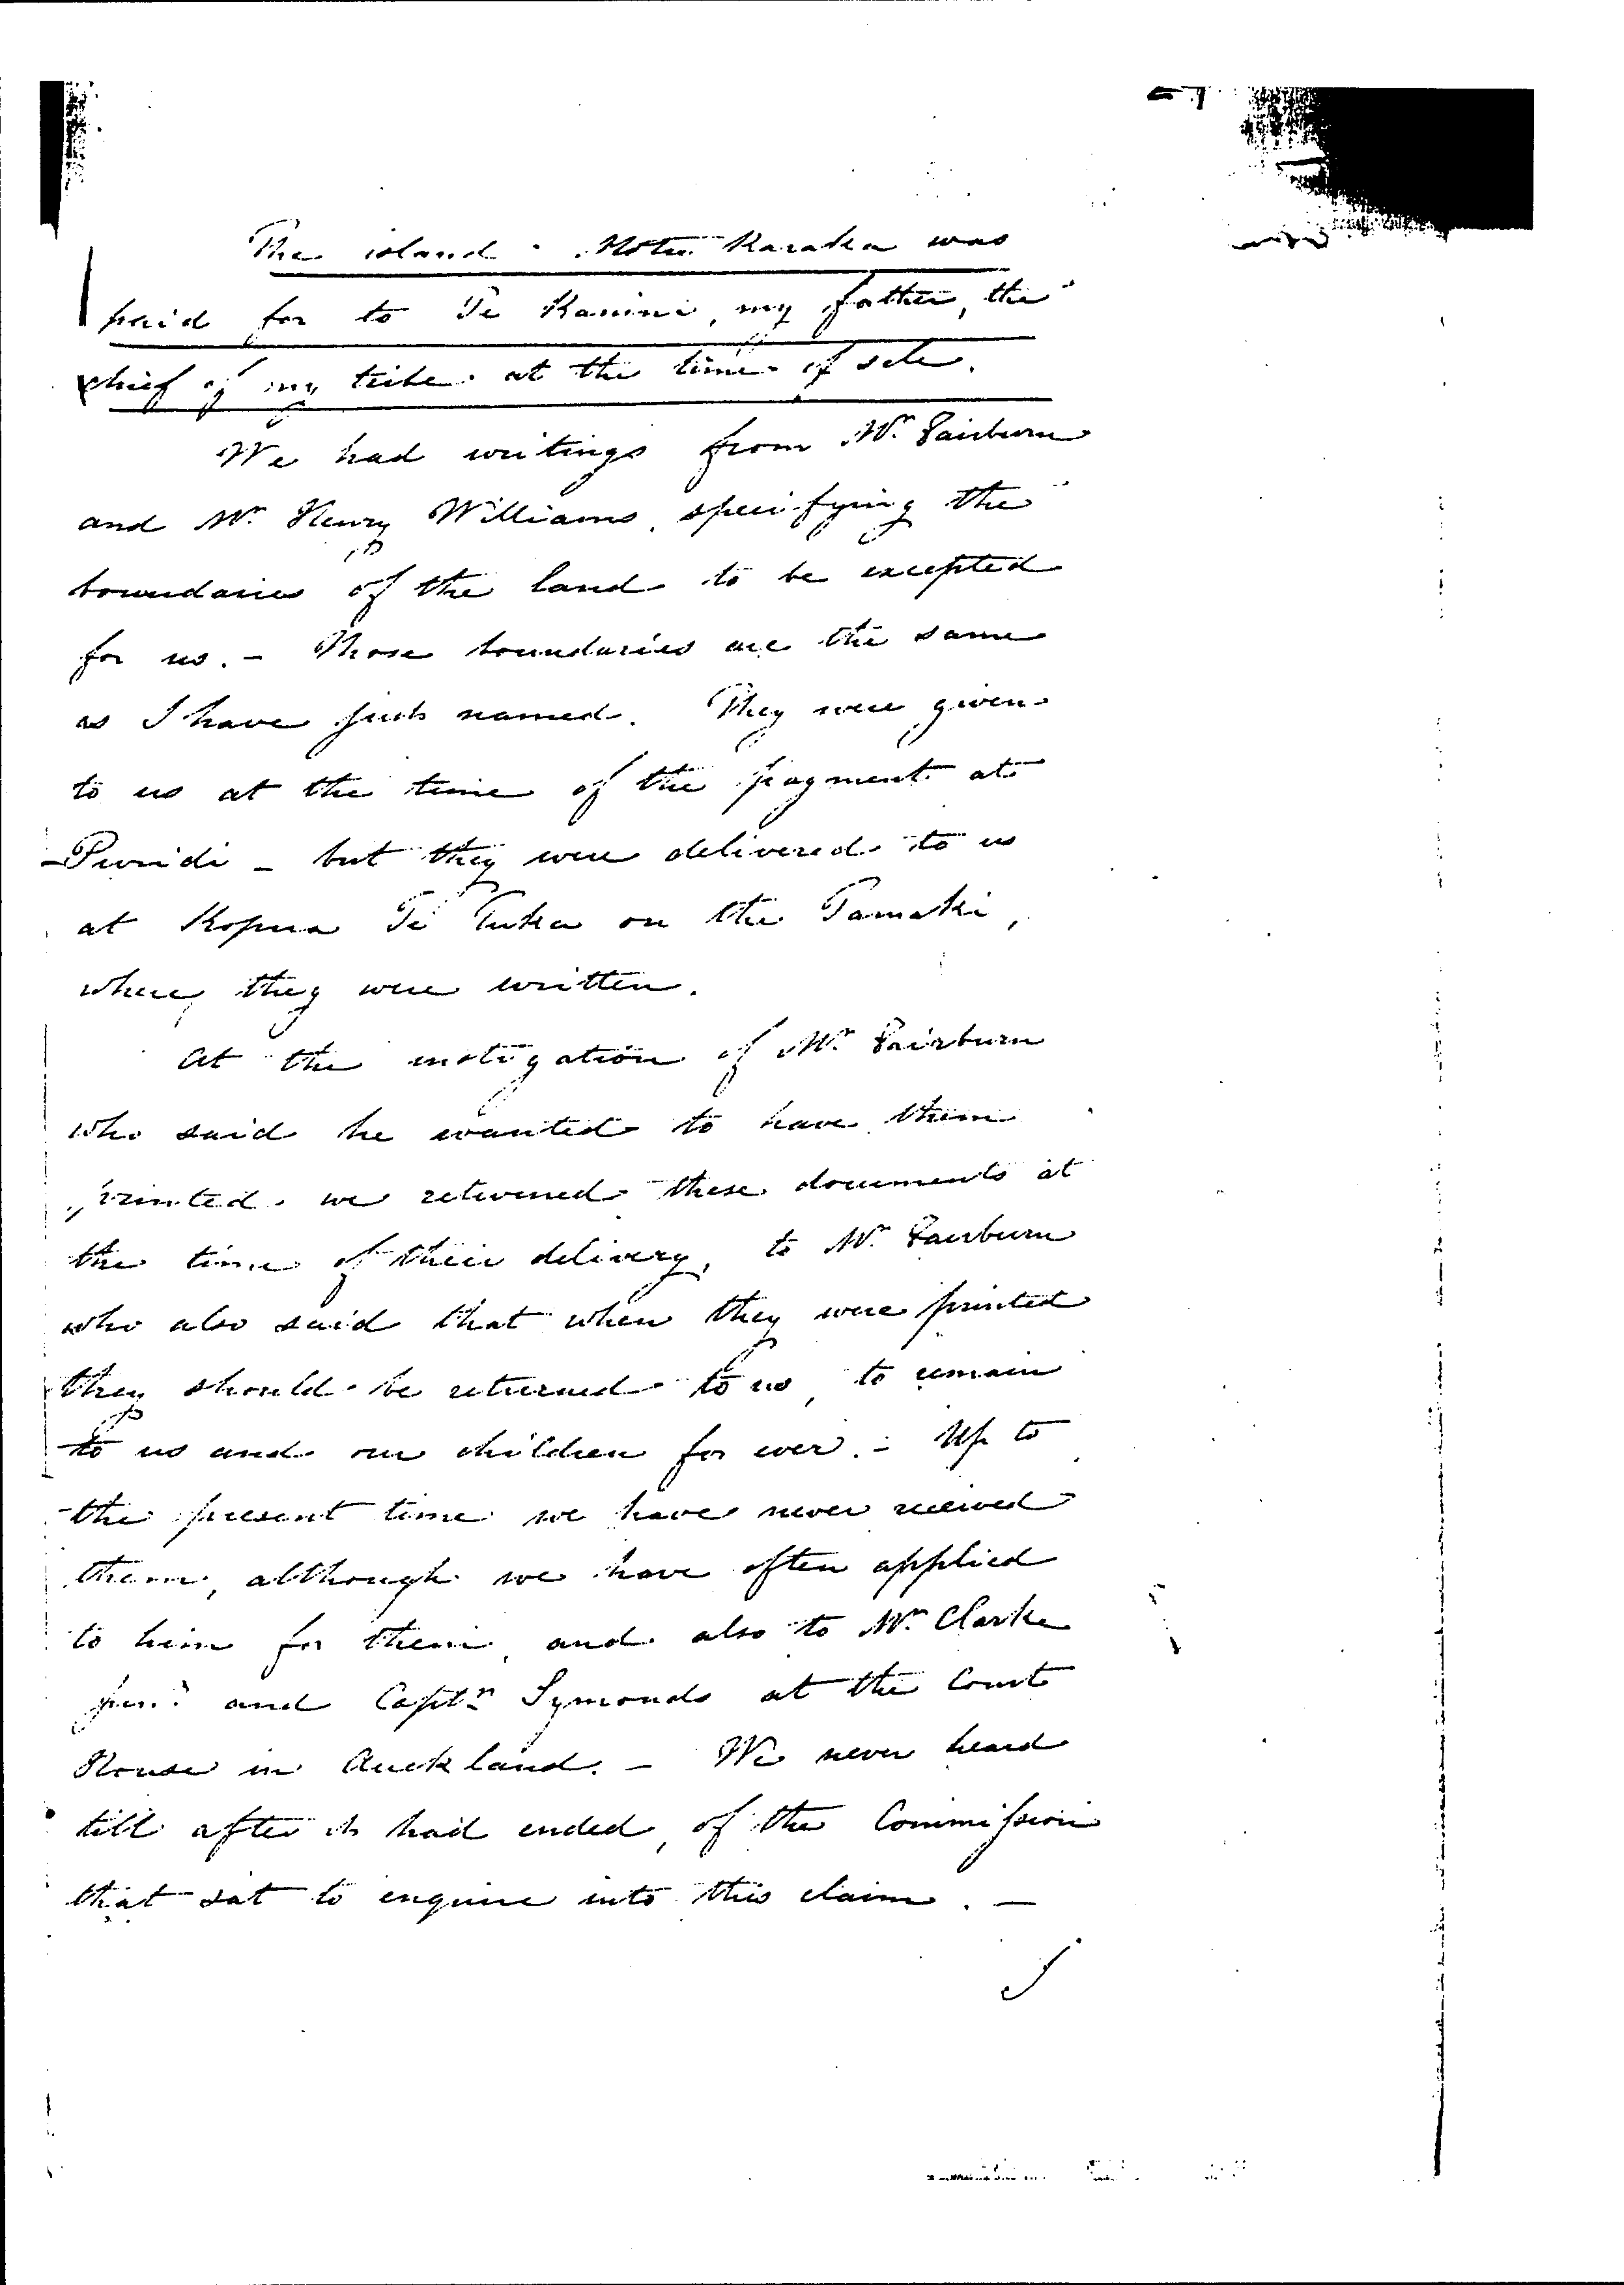 The island Motu Karaka was
paid for to Te Kanini, my father, the
chief of my tribe at the time of sale.
We had writings from Mr. Fairburn
and Mr. Henry Williams, specifying the
boundaries of the land to be excepted
for us. - Those boundaries are the same
as I have just named. They were given
to us at the time of the payment at
Puridi - but they were delivered to us
at Kopua Te Tuka on the Tamaki,
where they were written.
At the instigation of Mr. Fairburn
who said he wanted to have them
printed, we returned these documents at
the time of their delivery, to Mr. Fairburn
who also said that when they were printed
they should be returned to us, to remain
to us and our children for ever. - Up to
the present time we have never received
them, although we have often applied
to him for them, and also to Mr. Clarke
junr. and Captn Symonds at the Court
House in Auckland. - We never heard
till after it had ended, of the Commission
that sat to enquire into this claim. -
I